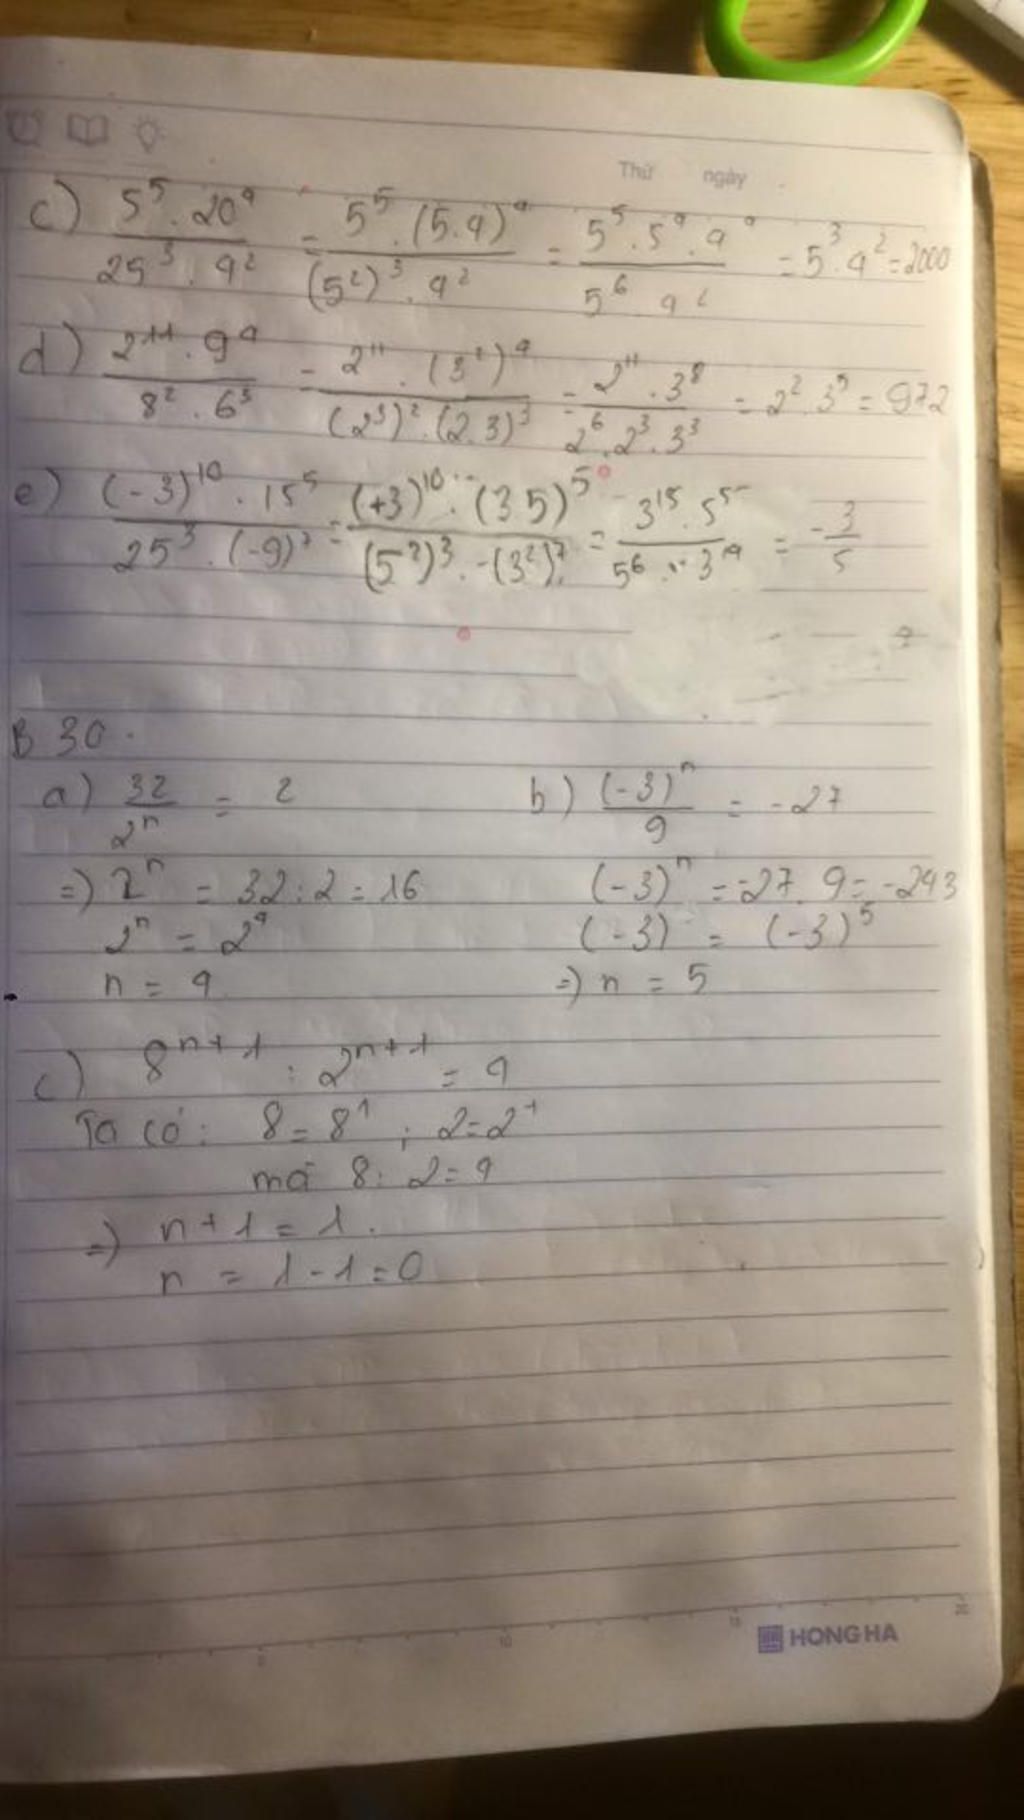 Thứ ngày
c) \frac{5^5 . 20^4}{25^3 . 4^2} = \frac{5^5 . (5.4)^4}{(5^2)^3 . 4^2} = \frac{5^5 . 5^4 . 4^4}{5^6 . 4^2} = 5^3 . 4^2 = 2000
d) \frac{2^{11} . 9^4}{8^2 . 6^3} = \frac{2^{11} . (3^2)^4}{(2^3)^2 . (2.3)^3} = \frac{2^{11} . 3^8}{2^6 . 2^3 . 3^3} = 2^2 . 3^5 = 972
e) \frac{(-3)^{10} . 15^5}{25^3 . (-9)^7} = \frac{(+3)^{10} . (3 5)^5}{(5^2)^3 . -(3^2)^7} = \frac{3^{15} . 5^5}{5^6 . - 3^{14}} = -\frac{3}{5}
B 30.
a) \frac{32}{2^n} = 2
=) 2^n = 32 : 2 = 16
2^n = 2^4
n = 4
b) \frac{(-3)^n}{9} = -27
(-3)^n = -27 . 9 = -243
(-3) = (-3)^5
=) n = 5
c) 8^{n+1} : 2^{n+1} = 4
Ta có: 8 = 8^1 ; 2 = 2^1
mà 8 : 2 = 4
=) n + 1 = 1.
n = 1 - 1 = 0
HONG HA